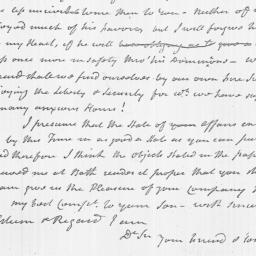 up uncivil to me than to you - neither of us
joyed much of his favors but I will forgive h
my Heart, if he will
us once more in safety thro' his Dominions - W
and shall we find ourselves by our own fire Si
joying the Liberty & Security for wch. we have su
many anxious Hours!
I presume that the State of your affairs on
by this Time in as good a State as you can put
and therefore I think the Objects stated in the pap
ewed me at Bath render it proper that you sh
can give us the Pleasure of your Company
my best Complts. to your Son - with sincer
Esteem & Regard I am
Dr Sir your Friend &